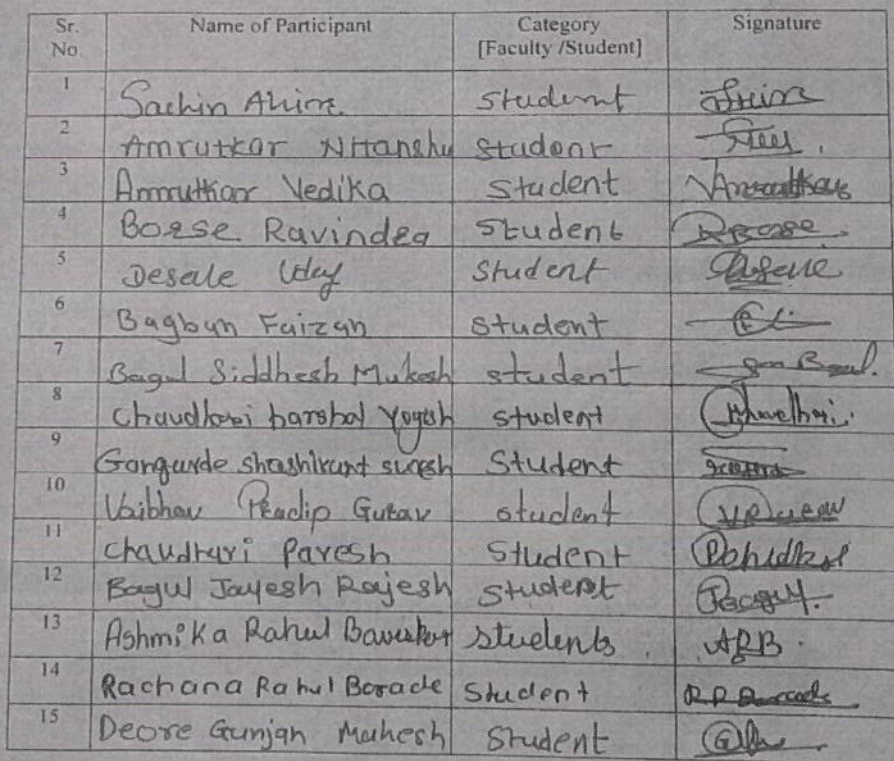 Sr. No. Name of Participant Category [Faculty /Student] Signature
1 Sachin Ahire Student
2 Amrutkar Nitanshu Student
3 Amrutkar Vedika Student
4 Borse Ravindra Student RBorse
5 Desale Uday Student
6 Bagban Faizan Student
7 Bagul Siddhesh Mukesh student
8 Chaudhari harshal Yogesh student
9 Gangurde shashikant suresh Student
10 Vaibhav Pradip Gurav student
11 Chaudhari Paresh Student
12 Bagul Jayesh Rajesh Student
13 Ashmika Rahul Baviskar students ARB.
14 Rachana Rahul Borade Student
15 Deore Gunjan Mahesh Student